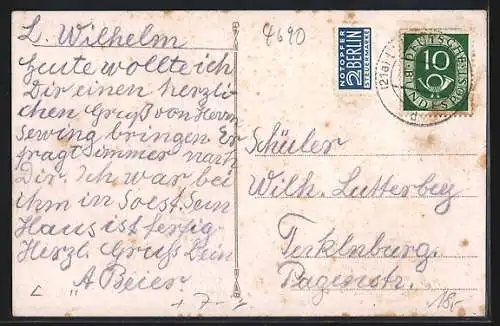 L. Wilhelm
heute wollte ich
Dir einen herzli-
chen Gruß von Herrn
Sewing bringen Er
fragt immer nach
Dir. Ich war bei
ihm in Soest. Sein
Haus ist fertig
Herzl. Gruß Dein
A Beier
4690
NOTOPFER
2 BERLIN
STEUERMARKE
DEUTSCHE BUNDESPOST
10
(21a)
Schüler
Wilh. Lutterbey
Tecklnburg.
Pagenstr.
+ 7 -
18,-